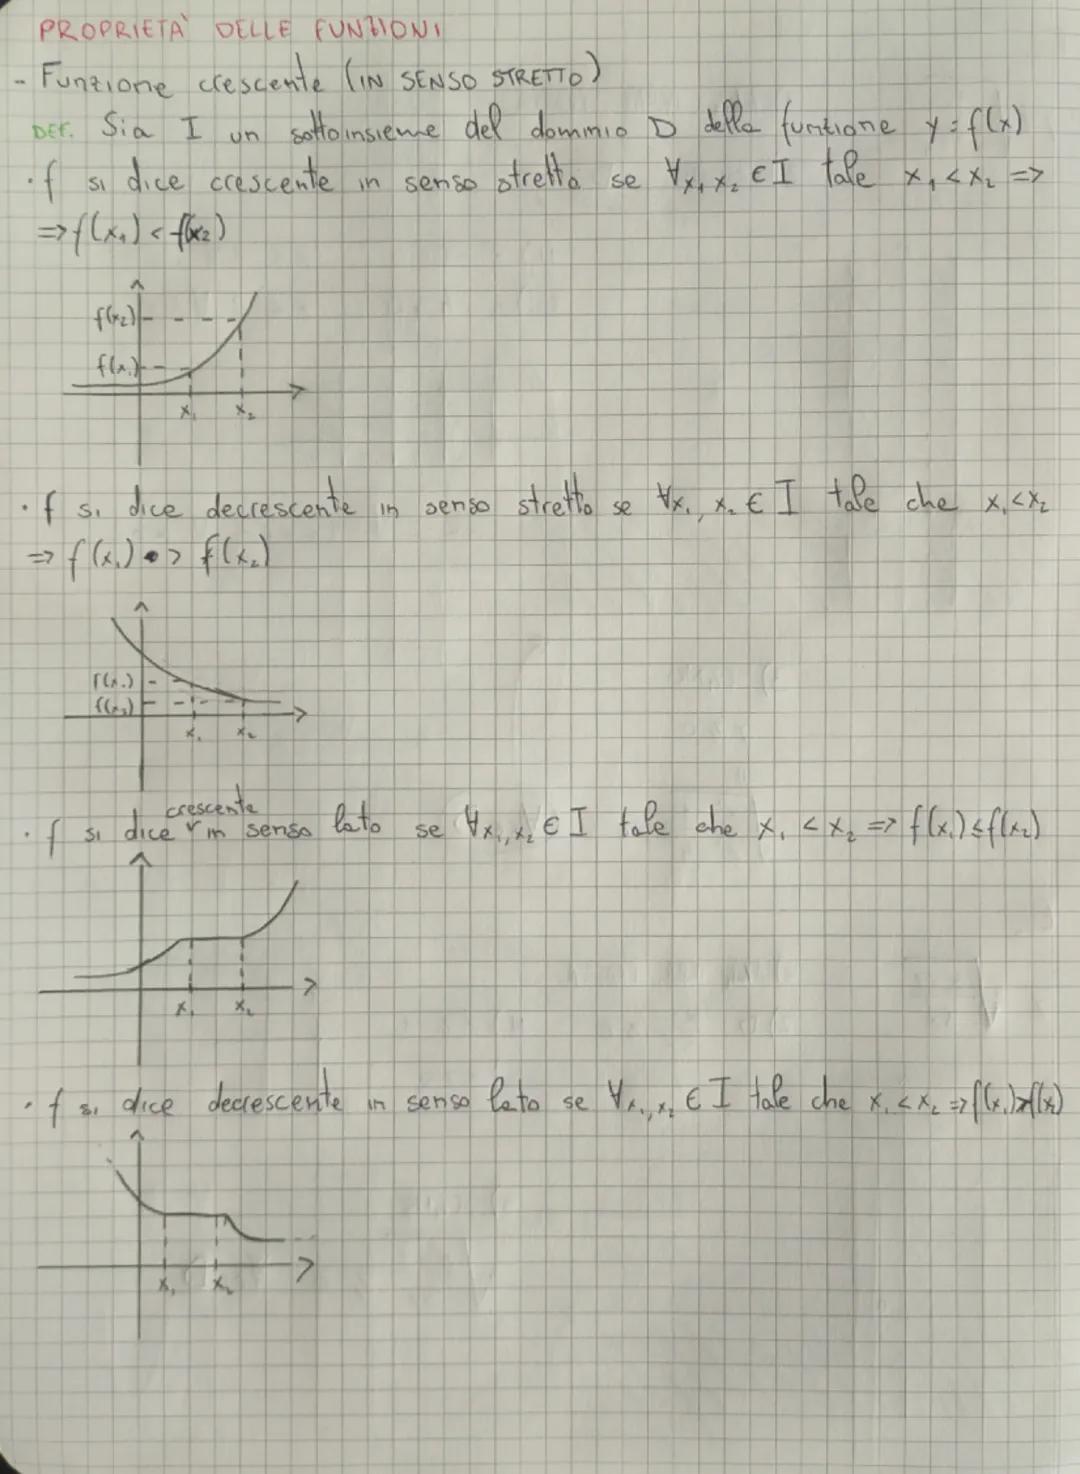 PROPRIETA' DELLE FUNZIONI
- Funzione crescente (IN SENSO STRETTO)
DEF. Sia I un sottoinsieme del dominio D della funzione y=f(x)
· f si dice crescente in senso stretto se ∀x₁, x₂ ∈ I tale x₁ < x₂ =>
=> f(x₁) < f(x₂)
f(x₂)
f(x₁)
x₁ x₂
· f si dice decrescente in senso stretto se ∀x₁, x₂ ∈ I tale che x₁<x₂
=> f(x₁) > f(x₂)
f(x₁)
f(x₂)
x₁ x₂
crescente
· f si dice in senso lato se ∀x₁, x₂ ∈ I tale che x₁ < x₂ => f(x₁) ≤ f(x₂)
x₁ x₂
· f si dice decrescente in senso lato se ∀x₁, x₂ ∈ I tale che x₁ < x₂ => f(x₁) ≥ f(x₂)
x₁ x₂